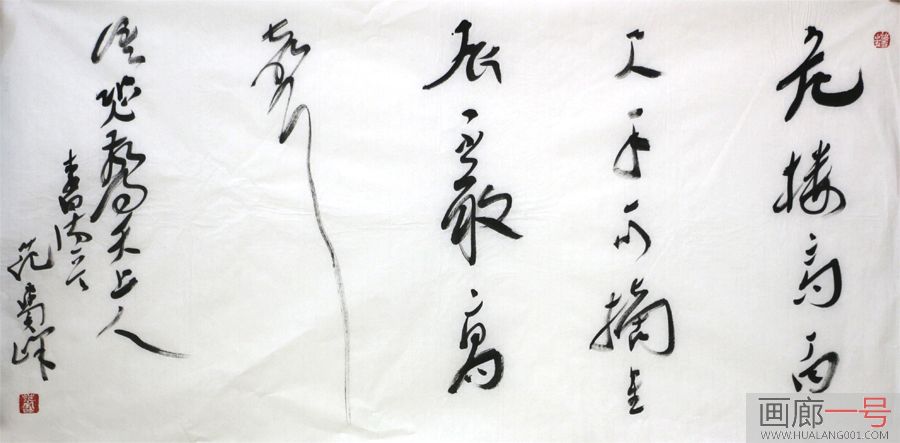 危楼高百
尺手可摘星
辰不敢高
聲
语恐驚天上人
李白诗
范
画廊一号
WWW.HUALANG001.COM